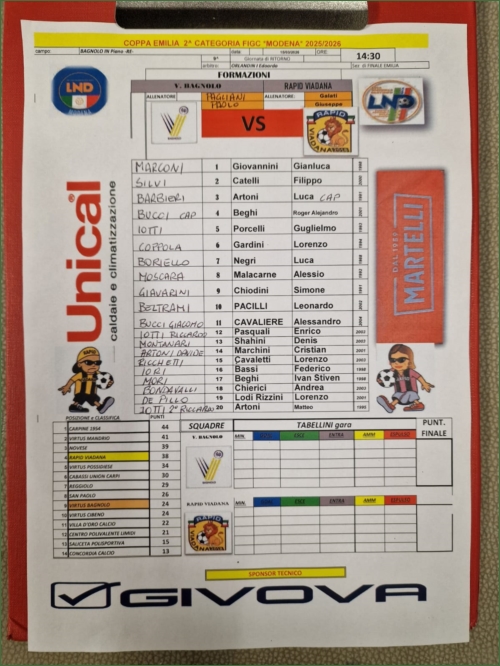 COPPA EMILIA 2^ CATEGORIA FIGC "MODENA" 2025/2026
campo: BAGNOLO IN Piano -RE- DATA ORE 14:30
9^ Giornata di RITORNO
arbitro: Sez. di FINALE EMILIA
FORMAZIONI
V. BAGNOLO RAPID VIADANA
ALLENATORE PAGLIANI PAOLO ALLENATORE: Galati Giuseppe
LND
VS
RAPID
VIADANA
LND
MARCONI 1 Giovannini Gianluca
SILVI 2 Catelli Filippo
BARBIERI 3 Artoni Luca CAP
BUCCI CAP 4 Beghi Roger Alejandro
IOTTI 5 Porcelli Guglielmo
COPPOLA 6 Gardini Lorenzo
BORIELLO 7 Negri Luca
MOSCARA 8 Malacarne Alessio
GIAVARINI 9 Chiodini Simone
BELTRAMI 10 PACILLI Leonardo
BUCCI GIACOMO 11 CAVALIERE Alessandro
IOTTI RICCARDO 12 Pasquali Enrico
MONTANARI 13 Shahini Denis
ARTONI DAVIDE 14 Marchini Cristian
RICCHETTI 15 Cavaletti Lorenzo
IORI 16 Bassi Federico
MORI 17 Beghi Ivan Stiven
BONDAVALLI 18 Chierici Andrea
DE PILLO 19 Lodi Rizzini Lorenzo
IOTTI 2° RICCARDO 20 Artoni Matteo
Unical
caldaie e climatizzazione
DAL 1959
MARTELLI
POSIZIONE e CLASSIFICA PUNTI
1 CARPINE 1954 44
2 VIRTUS MANDRIO 41
3 NOVESE 39
4 RAPID VIADANA 38
5 VIRTUS POSSIDESE 34
6 CABASSI UNION CARPI 30
7 REGGIOLO 29
8 SAN PAOLO 26
9 VIRTUS BAGNOLO 24
10 VIRTUS CIBENO 24
11 VILLA D'ORO CALCIO 22
12 CENTRO POLIVALENTE LIMIDI 21
13 SALICETA POLISPORTIVA 15
14 CONCORDIA CALCIO 13
SQUADRE TABELLINI gara PUNT. FINALE
V. BAGNOLO MIN. ENTRA AMM ESPULSO
RAPID VIADANA MIN. ENTRA AMM ESPULSO
RAPID
VIADANA
SPONSOR TECNICO
GIVOVA